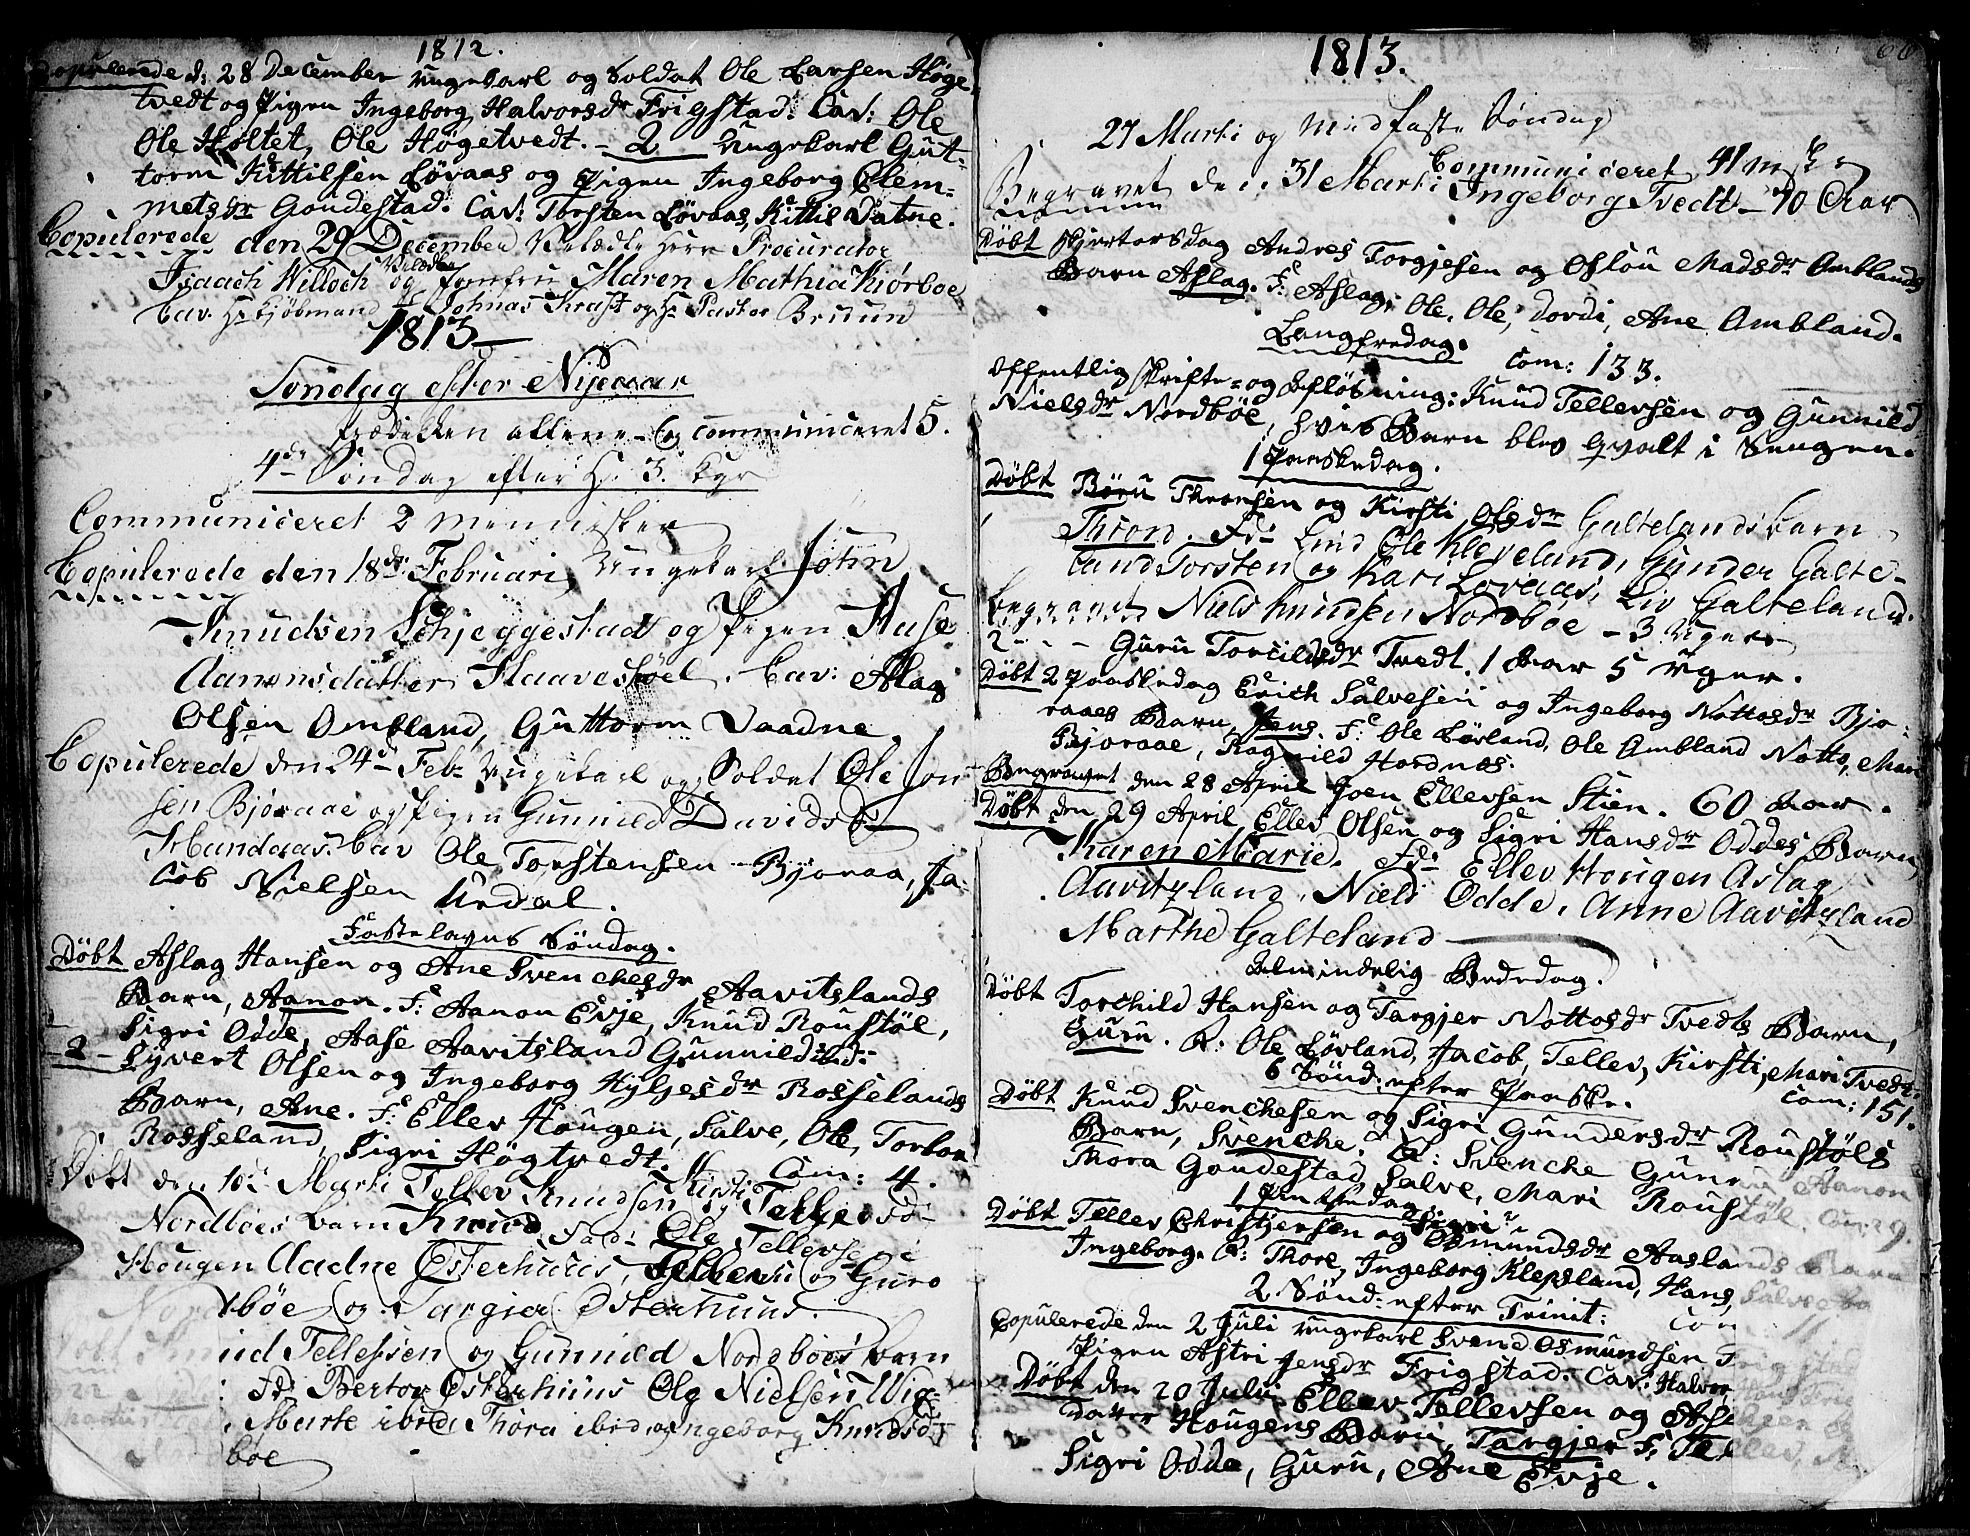 1812.
Copulerede d: 28 December Ungekarl og Soldat Ole Larsen Höge
tvedt og Pigen Ingeborg Halvorsdr Frigstad. Cav: Ole
Ole Holtet, Ole Högetvedt. - 2 Ungekarl Gut-
torm Kittilsen Lövaas og Pigen Ingeborg Clem-
metsdr Goudestad. Cav: Torsten Lövaas, Kittil Vatne.
Copulerede den 29 December Velædle Herr Procurator
Isaach Willoch og Velædle Jomfru Maren Mathia Kiørboe
Cav. Hr Kjöbmand Johnas Kraft og Hr Pastor Bruun
1813
Söndag efter Nyeaar
Prædiken allene - Og communiceret 5.
4de Söndag efter H. 3. Kgr
Communiceret 2 Mennisker
Copulerede den 18de Februari Ungekarl John
Knudsen Schjeggestad og Pigen Aase
Aanonsdatter Haavestöel. Cav: Aslag
Olsen Ombland, Guttorm Vaadne.
Copulerede den 24de Feb Ungekarl og Soldat Ole Jon
sen Bjoraae og Pigen Gunnild Davidsd
Mundaas. Cav Ole Torstensen Bjoraa, Ja-
cob Nielsen Urdal.
Fastelavns Söndag.
Döbt Aslag Hansen og Ane Svenchesdr Aavitslands
Barn, Aanon. F: Aanon Evje, Knud Roustöl,
Sigri Odde, Aase Aavitsland Gunnild ibid:
- 2 - Syvert Olsen og Ingeborg Kyljesdr Rosselands
Barn, Ane. F: Ellev Hougen, Salve, Ole, Torbor
Rosseland, Sigri Högtvedt. Com: 4.
Döbt den Marti Tellev Knudsen og Kirsti Tellefsd
Nordböes barn Knud Fad: Ole Tellevsen
Hougen Aadne Österhuus, og Guro
böe og Targier Österhuus.
Tellefsen og Gunnild Nordböes barn
Fd: Bertor Österhuus Ole Nielsen Vig
Marte ibid, Thora ibid og Ingeborg Knudsd
boe
1813.
27 Marti og Midfaste Söndag
Communiceret 41 msker
Begravet den 31 Marti Ingeborg Tvedt - 70 Aar
Döbt Skjertorsdag Andres Torgjesen og Oslou Madsdr Omblands
Barn Aslag. F: Aslag, Ole, Ole, Dordi, Ane Ombland.
Langfredag. Com: 133.
Offentlig Skrifte- og Aflösning: Knud Tellevsen og Gunnild
Nielsdr Nordböe, hvis Barn blev Qvalt i Sengen.
1 Paaskedag.
Döbt Böru Thronsen og Kirsti Olsdr Galtelands barn
Thron. Fd: Lind Ole Kleveland, Gunder Galte-
land Torsten og Kari Lovaas, Liv Galteland.
Begravet Niels Knudsen Nordböe - 3 Uger
2 - - - Guru Torcildsdr Tvedt. 1 Aar 5 Uger.
Döbt 2 Paaskedag Erich Salvesen og Ingeborg Nottosdr Bjo-
raaes Barn Jens. F: Ole Lövland, Ole Ombland Notto, Mari
Bjoraae, Ragnild Hordnes.
Begravet den 28 April Joen Ellevsen Stien. 60 Aar.
Döbt den 29 April Ellev Olsen og Sigri Hansdr Oddes Barn,
Karen Marie. Fd: Ellev Hougen Aslag
Aavitzland, Niels Odde, Anne Aavitzland
Marthe Galteland
Almindelig Bededag.
Döbt Torchild Hansen og Targjer Nottosdr Tvedts Barn,
Guru. F: Ole Lövland, Jacob, Tellev, Kirsti, Mari Tvedt.
6 Sönd: efter Paaske. Com: 151.
Döbt Knud Svenchesen og Sigri Gundersdr Roustöls
Barn, Svenche. F: Svenche Gun Aanon
Thora Goudestad, Salve, Mari Roustöl. Com: 29.
1 Pintsedag
Döbt Tellev Christjersen og Sigri Osmundsdr Aaslands Barn
Ingeborg. F: Thore, Ingeborg Klepsland, Hans, Salve
2 Sönd: efter Trinit: Com
Copulerede den 2 Juli Ungekarl Svend Osmundsen F
Pigen Astri Jensdr Frigstad. Cav: Halvor
Döbt den 20 Juli Ellev Tellevsen og Ase
Datter Hougens Barn, Targjer F: Tel
Sigri Odde, Guru, Ane Evje.